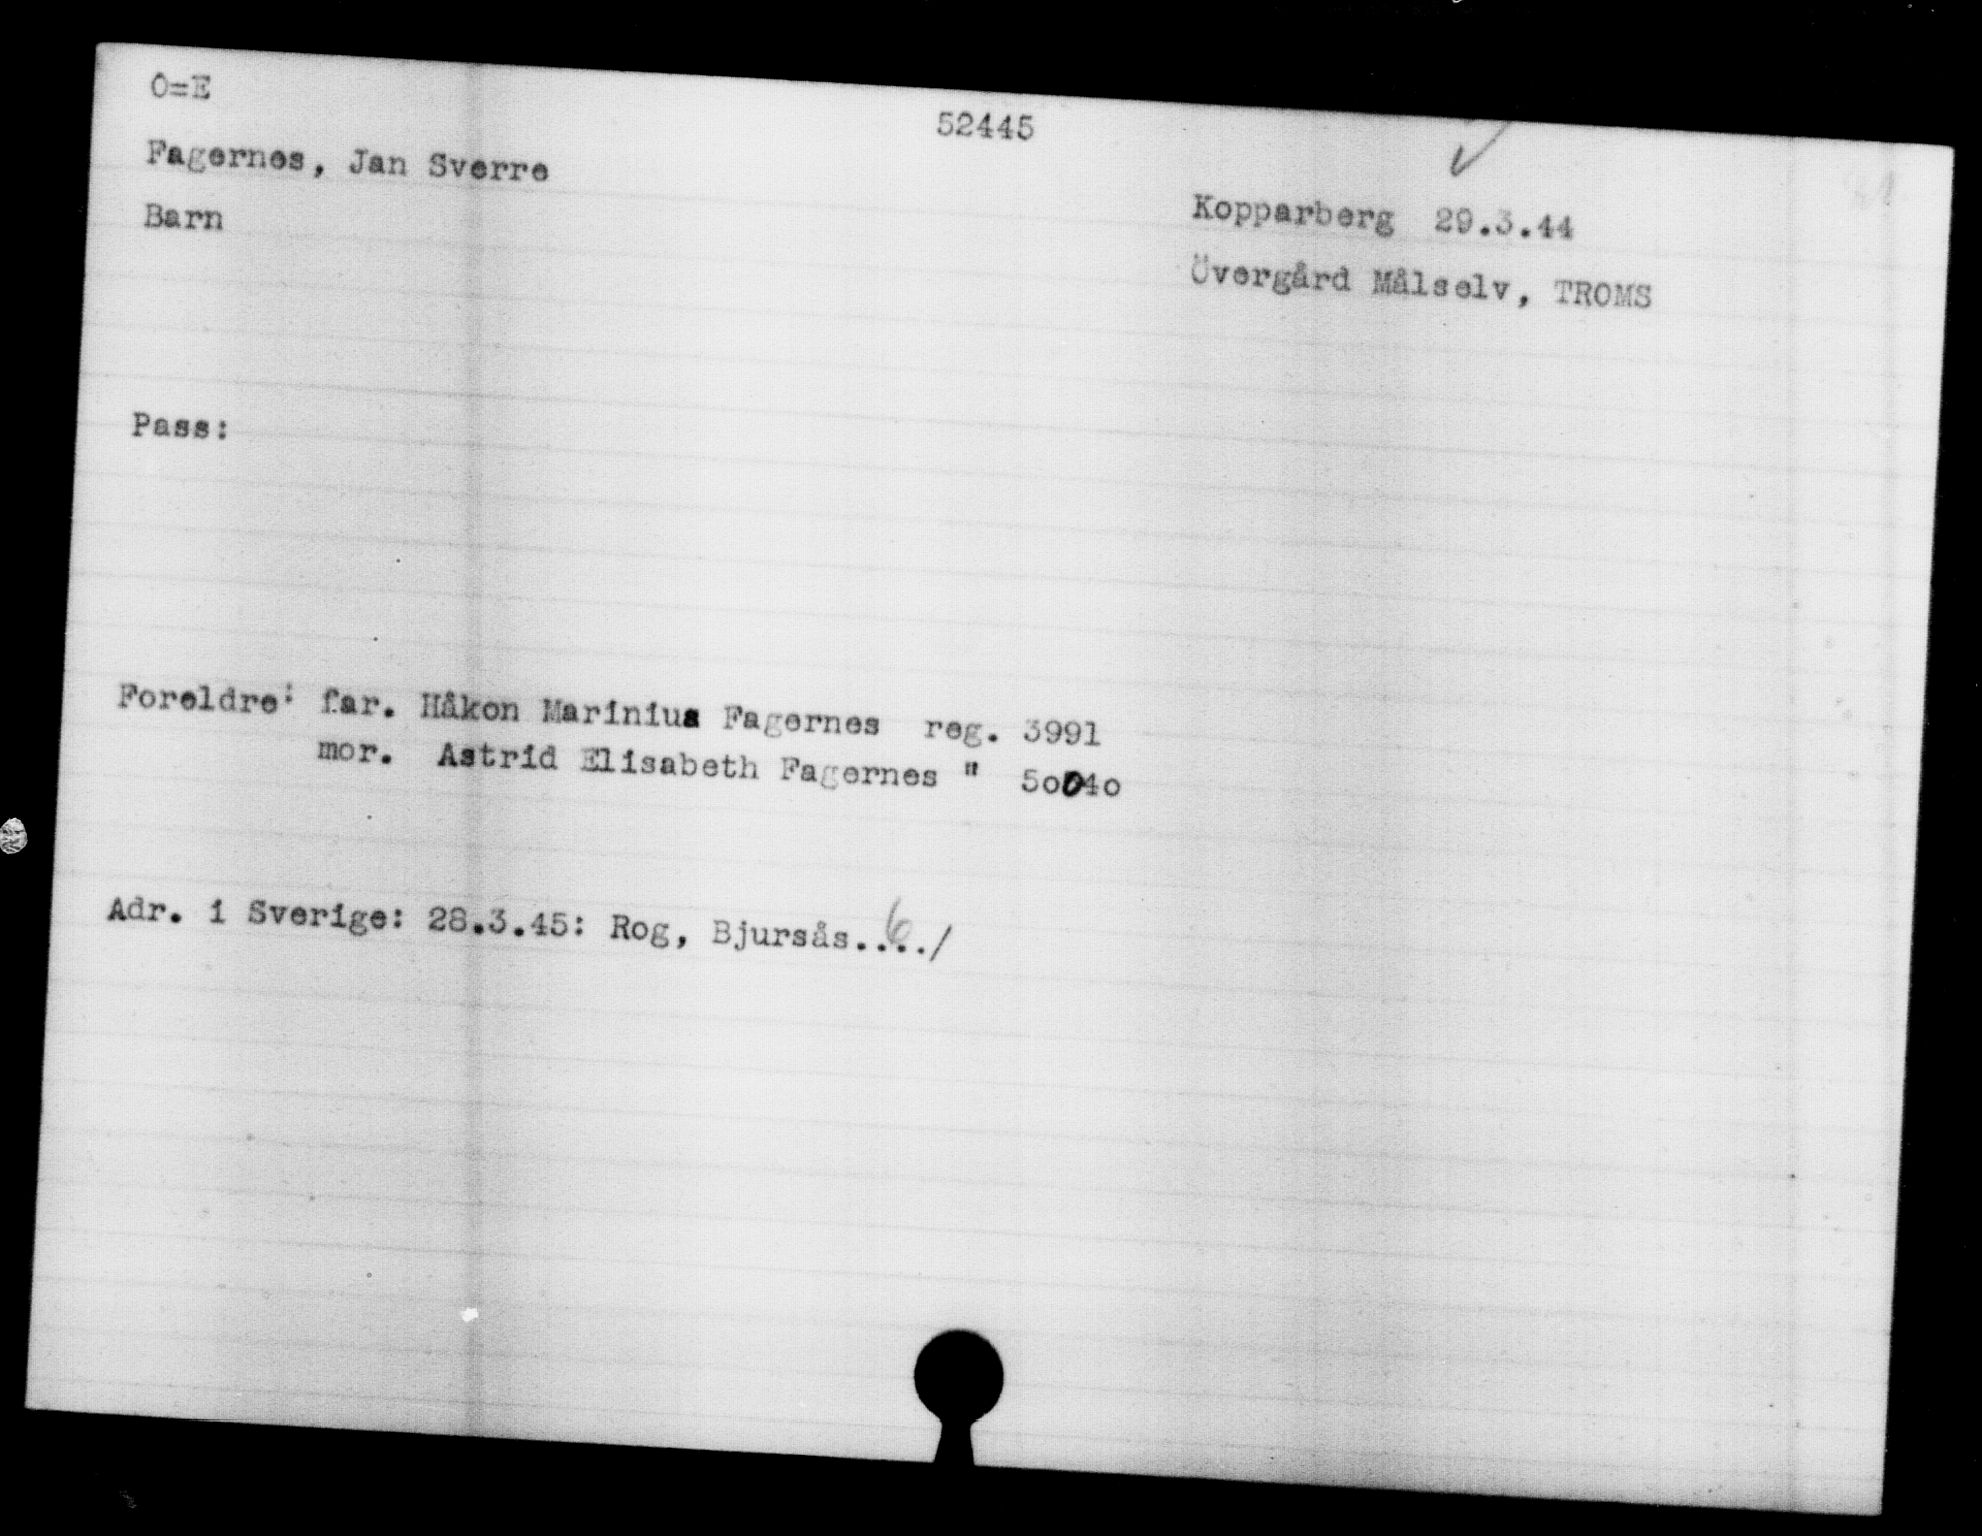 O=E
52445
Fagernes, Jan Sverre
Barn
Kopparberg 29.3.44
Övergård Målselv, TROMS
Pass:
Foreldre: far. Håkon Marinius Fagernes reg. 3991
mor. Astrid Elisabeth Fagernes " 5oo4o
Adr. i Sverige: 28.3.45: Rog, Bjursås..../
6